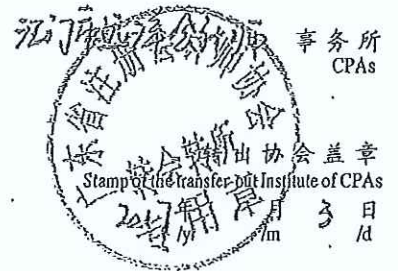 事务所
CPAs
广东省注册会计师协会
转所专用章
转出协会盖章
Stamp of the transfer-out Institute of CPAs
2017年 月 3 日
/y /m /d